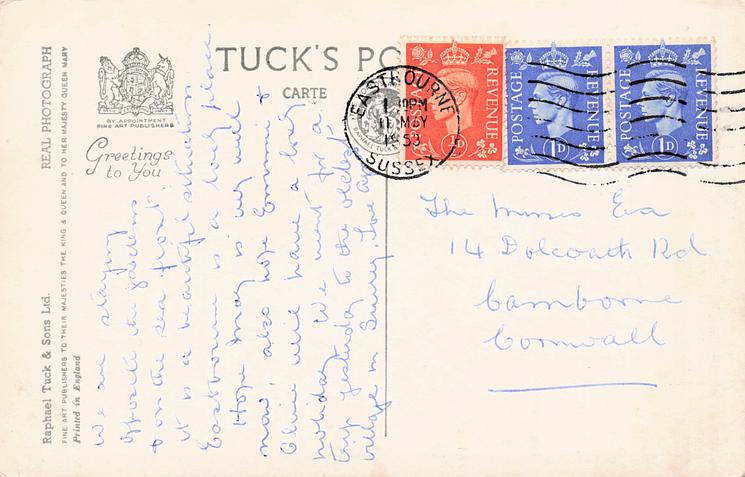 Raphael Tuck & Sons Ltd. REAL PHOTOGRAPH
FINE ART PUBLISHERS TO THEIR MAJESTIES THE KING & QUEEN AND TO HER MAJESTY QUEEN MARY
Printed in England
BY APPOINTMENT
FINE ART PUBLISHERS
Greetings
to You
TUCK'S PO
CARTE
RAPHAEL TUCK
EASTBOURNE
PM
11 MY
SUSSEX
REVENUE
POSTAGE
REVENUE
1D
POSTAGE
REVENUE
1D
We are staying
opposite the gardens
+ on the sea front
it is a beautiful situation
Eastbourne is a lovely place
Hope May is well
now, also hope Emmie +
Olivie will have a lovely
holiday. We went for a
trip yesterday to the oldest
village in Surrey, Love
The Misses
14 Dolcoath Rd
Camborne
Cornwall